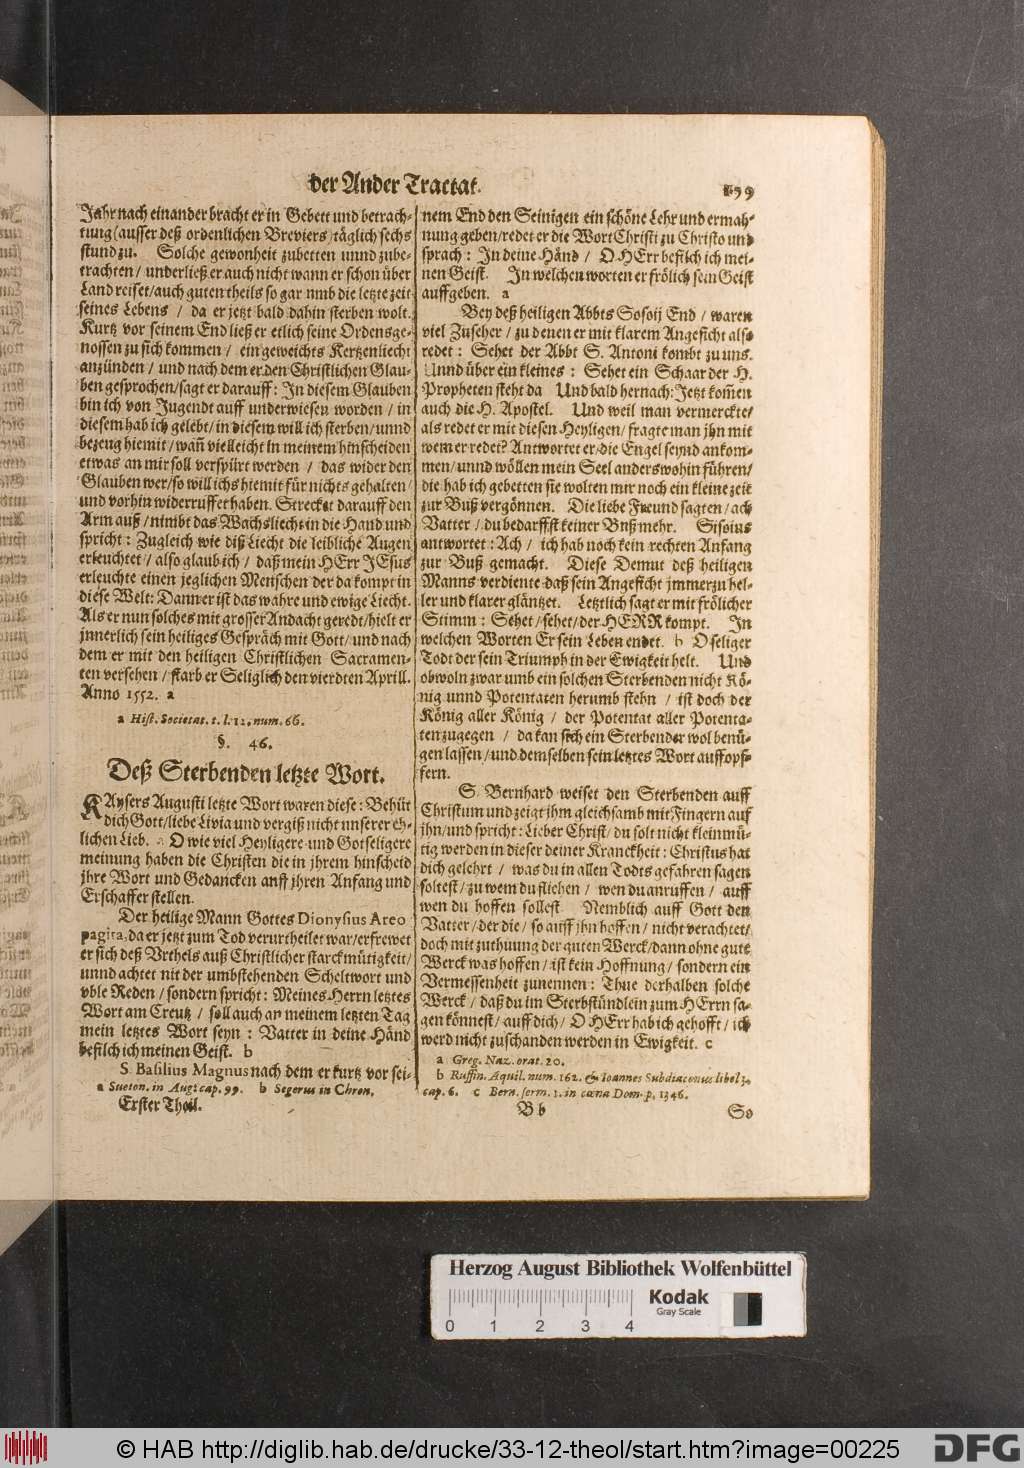 der Ander Tractat.
199
Jahr nach einander bracht er in Gebett und betrach-
tung (ausser deß ordenlichen Breviers) täglich sechs
stund zu. Solche gewonheit zubetten unnd zube-
trachten / underließ er auch nicht wann er schon über
Land reiset / auch guten theils so gar umb die letzte zeit
seines Lebens / da er jetzt bald dahin sterben wolt.
Kurtz vor seinem End ließ er etlich seine Ordensge-
nossen zu sich kommen / ein geweichts Kertzenliecht
anzünden / und nach dem er den Christlichen Glau-
ben gesprochen / sagt er darauff: In diesem Glauben
bin ich von Jugendt auff underwiesen worden / in
diesem hab ich gelebt / in diesem will ich sterben / unnd
bezeug hiemit / wañ vielleicht in meinem hinscheiden
etwas an mir soll verspürt werden / das wider den
Glauben wer / so will ichs hiemit für nichts gehalten /
und vorhin widerruffet haben. Strecket darauff den
Arm auß / nimbt das Wachsliecht in die Hand und
spricht: Zugleich wie diß Liecht die leibliche Augen
erleuchtet / also glaub ich / daß mein HErr JEsus
erleuchte einen jeglichen Menschen der da kompt in
diese Welt: Dann er ist das wahre und ewige Liecht.
Als er nun solches mit grosser Andacht geredt / hielt er
jnnerlich sein heiliges Gespräch mit Gott / und nach
dem er mit den heiligen Christlichen Sacramen-
ten versehen / starb er Seliglich den vierdten Aprill.
Anno 1552. a
a Hist. Societat. t. l. 12. num. 66.
§. 46.
Deß Sterbenden letzte Wort.
KAysers Augusti letzte Wort waren diese: Behüt
dich Gott / liebe Livia und vergiß nicht unserer eh-
lichen Lieb. a O wie viel Heyligere und Gotseligere
meinung haben die Christen die in jhrem hinscheid
jhre Wort und Gedancken auff jhren Anfang und
Erschaffer stellen.
Der heilige Mann Gottes Dionysius Areo
pagita, da er jetzt zum Tod verurtheilet war / erfrewet
er sich deß Urthels auß Christlicher starckmütigkeit /
unnd achtet nit der umbstehenden Scheltwort und
uble Reden / sondern spricht: Meines Herrn letztes
Wort am Creutz / soll auch an meinem letzten Tag
mein letztes Wort seyn: Vatter in deine Händ
befilch ich meinen Geist. b
S. Basilius Magnus nach dem er kurtz vor sei-
a Sueton. in Aug. cap. 99. b Segerus in Chron.
Erster Theil.
nem End den Seinigen ein schöne Lehr und ermah-
nung geben / redet er die Wort Christi zu Christo und
sprach: In deine Händ / O HErr befilch ich mei-
nen Geist. In welchen worten er frölich sein Geist
auffgeben. a
Bey deß heiligen Abbts Sosoij End / waren
viel Zuseher / zu denen er mit klarem Angesicht also
redet: Sehet der Abbt S. Antoni kombt zu uns.
Unnd über ein kleines: Sehet ein Schaar der H.
Propheten steht da Und bald hernach: Jetzt kom̃en
auch die H. Apostel. Und weil man vermerckte /
als redet er mit diesen Heyligen / fragte man jhn mit
wem er redet? Antwortet er / die Engel seynd ankom-
men / unnd wöllen mein Seel anderswohin führen /
die hab ich gebetten sie wolten mir noch ein kleine zeit
zur Buß vergönnen. Die liebe Freund sagten / ach
Vatter / du bedarffst keiner Buß mehr. Sisoius
antwortet: Ach / ich hab noch kein rechten Anfang
zur Buß gemacht. Diese Demut deß heiligen
Manns verdiente daß sein Angesicht jmmerzu hel-
ler und klarer gläntzet. Letztlich sagt er mit frölicher
Stimm: Sehet / sehet / der HERR kompt. In
welchen Worten Er sein Leben endet. b O seliger
Todt der sein Triumph in der Ewigkeit helt. Und
obwoln zwar umb ein solchen Sterbenden nicht Kö-
nig unnd Potentaten herumb stehn / ist doch der
König aller König / der Potentat aller Potenta-
ten zugegen / da kan sich ein Sterbender wol benü-
gen lassen / und demselben sein letztes Wort auffopf-
fern.
S. Bernhard weiset den Sterbenden auff
Christum und zeigt jhm gleichsamb mit Fingern auf
jhn / und spricht: Lieber Christ / du solt nicht kleinmü-
tig werden in dieser deiner Kranckheit: Christus hat
dich gelehrt / was du in allen Todts gefahren sagen
soltest / zu wem du fliehen / wen du anruffen / auff
wen du hoffen sollest Nemblich auff Gott den
Vatter / der die / so auff jhn hoffen / nicht verachtet /
doch mit zuthuung der guten Werck / dann ohne gute
Werck was hoffen / ist kein Hoffnung / sondern ein
Vermessenheit zunennen: Thue derhalben solche
Werck / daß du im Sterbstündlein zum HErrn sa-
gen könnest / auff dich / O HErr hab ich gehofft / ich
werd nicht zuschanden werden in Ewigkeit. c
a Greg. Naz. orat. 20.
b Ruffin. Aquil. num. 162. & Ioannes Subdiaconus libel 3.
cap. 6. c Bern. serm. 1. in cœna Dom. p. 1346.
B b
So
Herzog August Bibliothek Wolfenbüttel
Kodak
Gray Scale
0 1 2 3 4
© HAB http://diglib.hab.de/drucke/33-12-theol/start.htm?image=00225
DFG